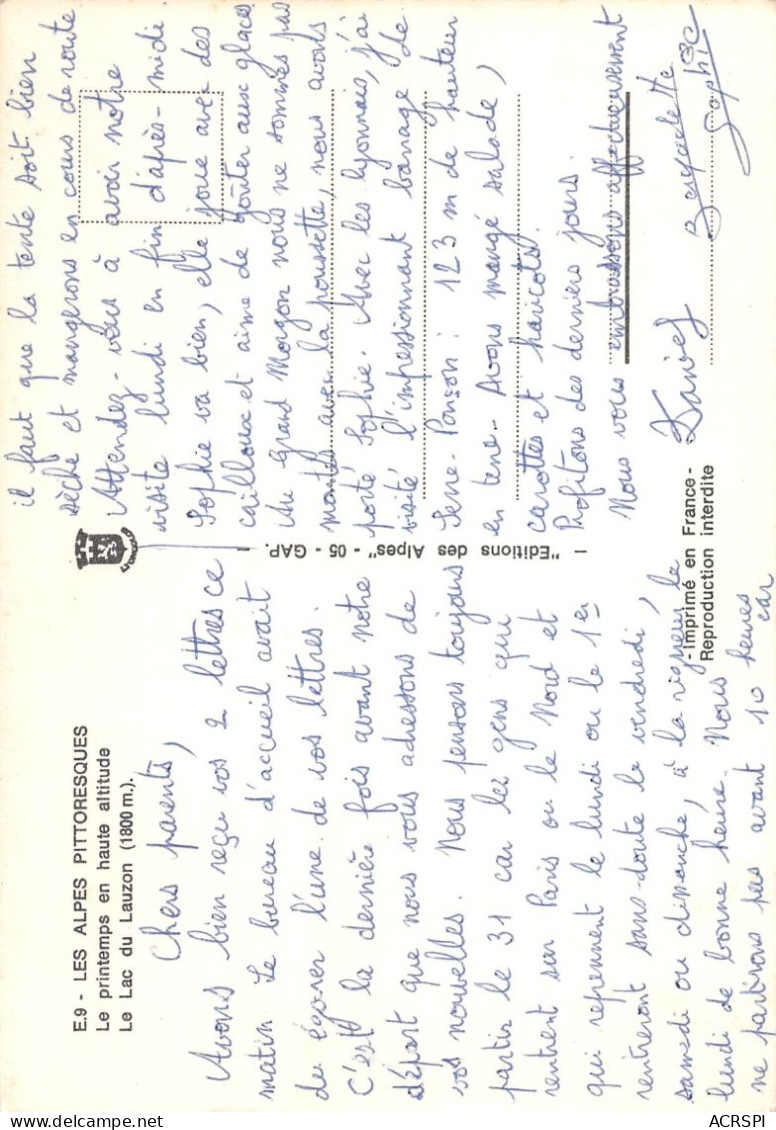 E.9 - LES ALPES PITTORESQUES
Le printemps en haute altitude
Le Lac du Lauzon (1800 m.).
Chers parents,
Avons bien reçu vos 2 lettres ce
matin. Le bureau d'accueil avait
du égarer l'une de vos lettres.
C'est la dernière fois avant notre
départ que nous vous adressons de
vos nouvelles. Nous pensons toujours
partir le 31 car les gens qui
rentrent sur Paris ou le Nord et
qui reprennent le lundi ou le 1er
rentreront sans-doute le vendredi,
samedi ou dimanche, à la rigueur le
lundi de bonne heure. Nous
ne partirons pas avant 10 heures car
"Editions des Alpes" - 05 - GAP.
- Imprimé en France -
Reproduction interdite
il faut que la tente soit bien
sèche et mangerons en cours de route
Attendez-vous à avoir notre
visite lundi en fin d'après-midi
Sophie va bien, elle joue avec des
cailloux et aime de goûter aux glaces
Au Grand Morgon nous ne sommes pas
montés avec la poussette, nous avons
porté Sophie. Avec les lyonnais, j'ai
visité l'impressionnant barrage de
Serre-Ponson : 123 m de hauteur
en terre. Avons mangé salade,
carottes et haricots.
Profitons des derniers jours.
Nous vous embrassons affectueusement
Bernadette
Sophie
ACRSPI